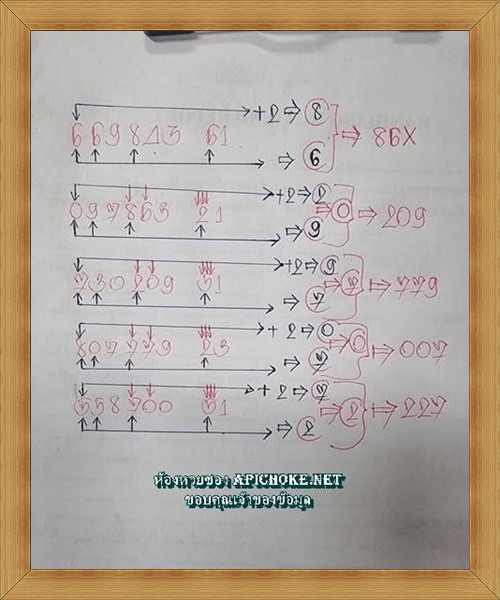 +2 ⇒ 8
669 843 61 ⇒ 86X
⇒ 6
+2 ⇒ 2
097 863 21 ⇒ 0 ⇒ 209
⇒ 9
+2 ⇒ 9
730 209 51 ⇒ 7 ⇒ 779
⇒ 7
+2 ⇒ 0
807 779 23 ⇒ 0 ⇒ 007
⇒ 7
+2 ⇒ 7
558 700 51 ⇒ 2 ⇒ 227
⇒ 2
ห้องหวยซอง APICHOKE.NET
ขอบคุณเจ้าของข้อมูล